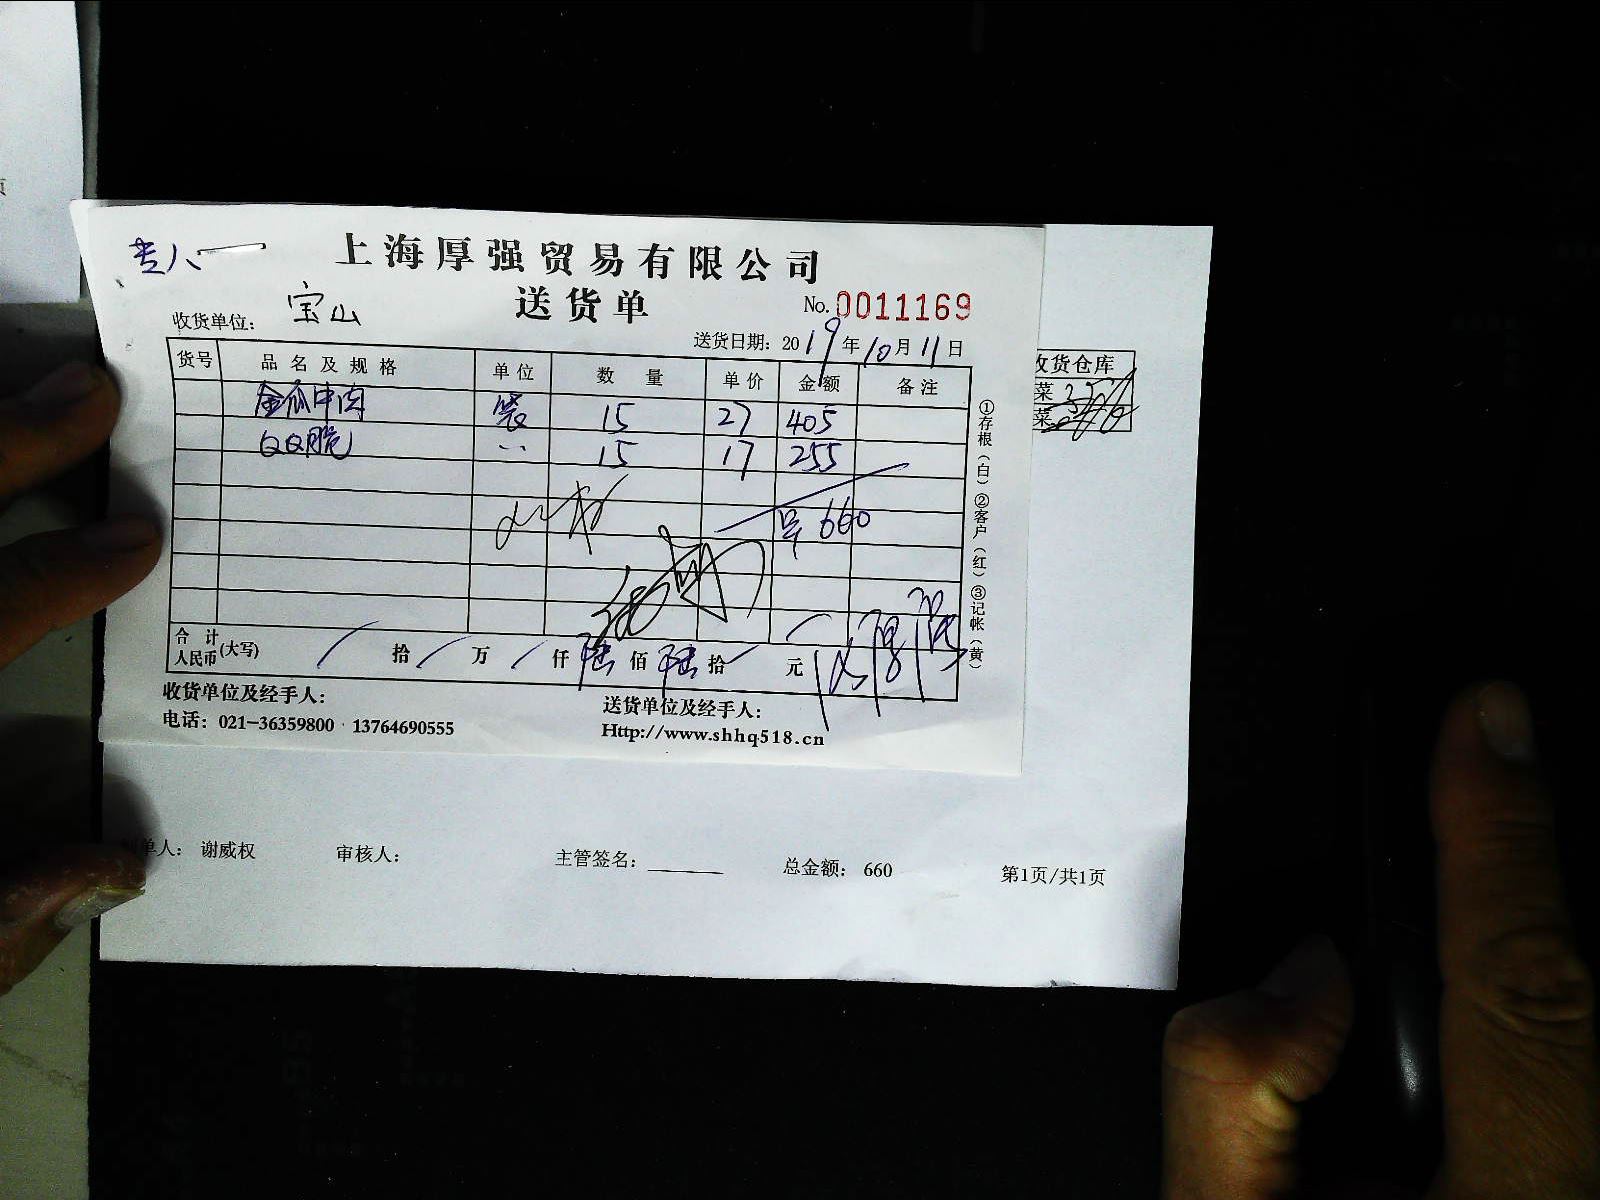 上海厚强贸易有限公司
送货单
No. 0011169
收货单位： 宝山
送货日期：2019年10月11日
货号 品名及规格 单位 数量 单价 金额 备注
金瓜牛肉 袋 15 27 405
QQ脆 〃 15 17 255
660
合计人民币(大写) / 拾 / 万 / 仟 陆 佰 陆 拾 / 元
收货单位及经手人：
送货单位及经手人：
电话：021-36359800 13764690555
Http://www.shhq518.cn
①存根（白）②客户（红）③记帐（黄）
收货仓库
菜
菜
制单人：谢威权 审核人： 主管签名： 总金额：660 第1页/共1页